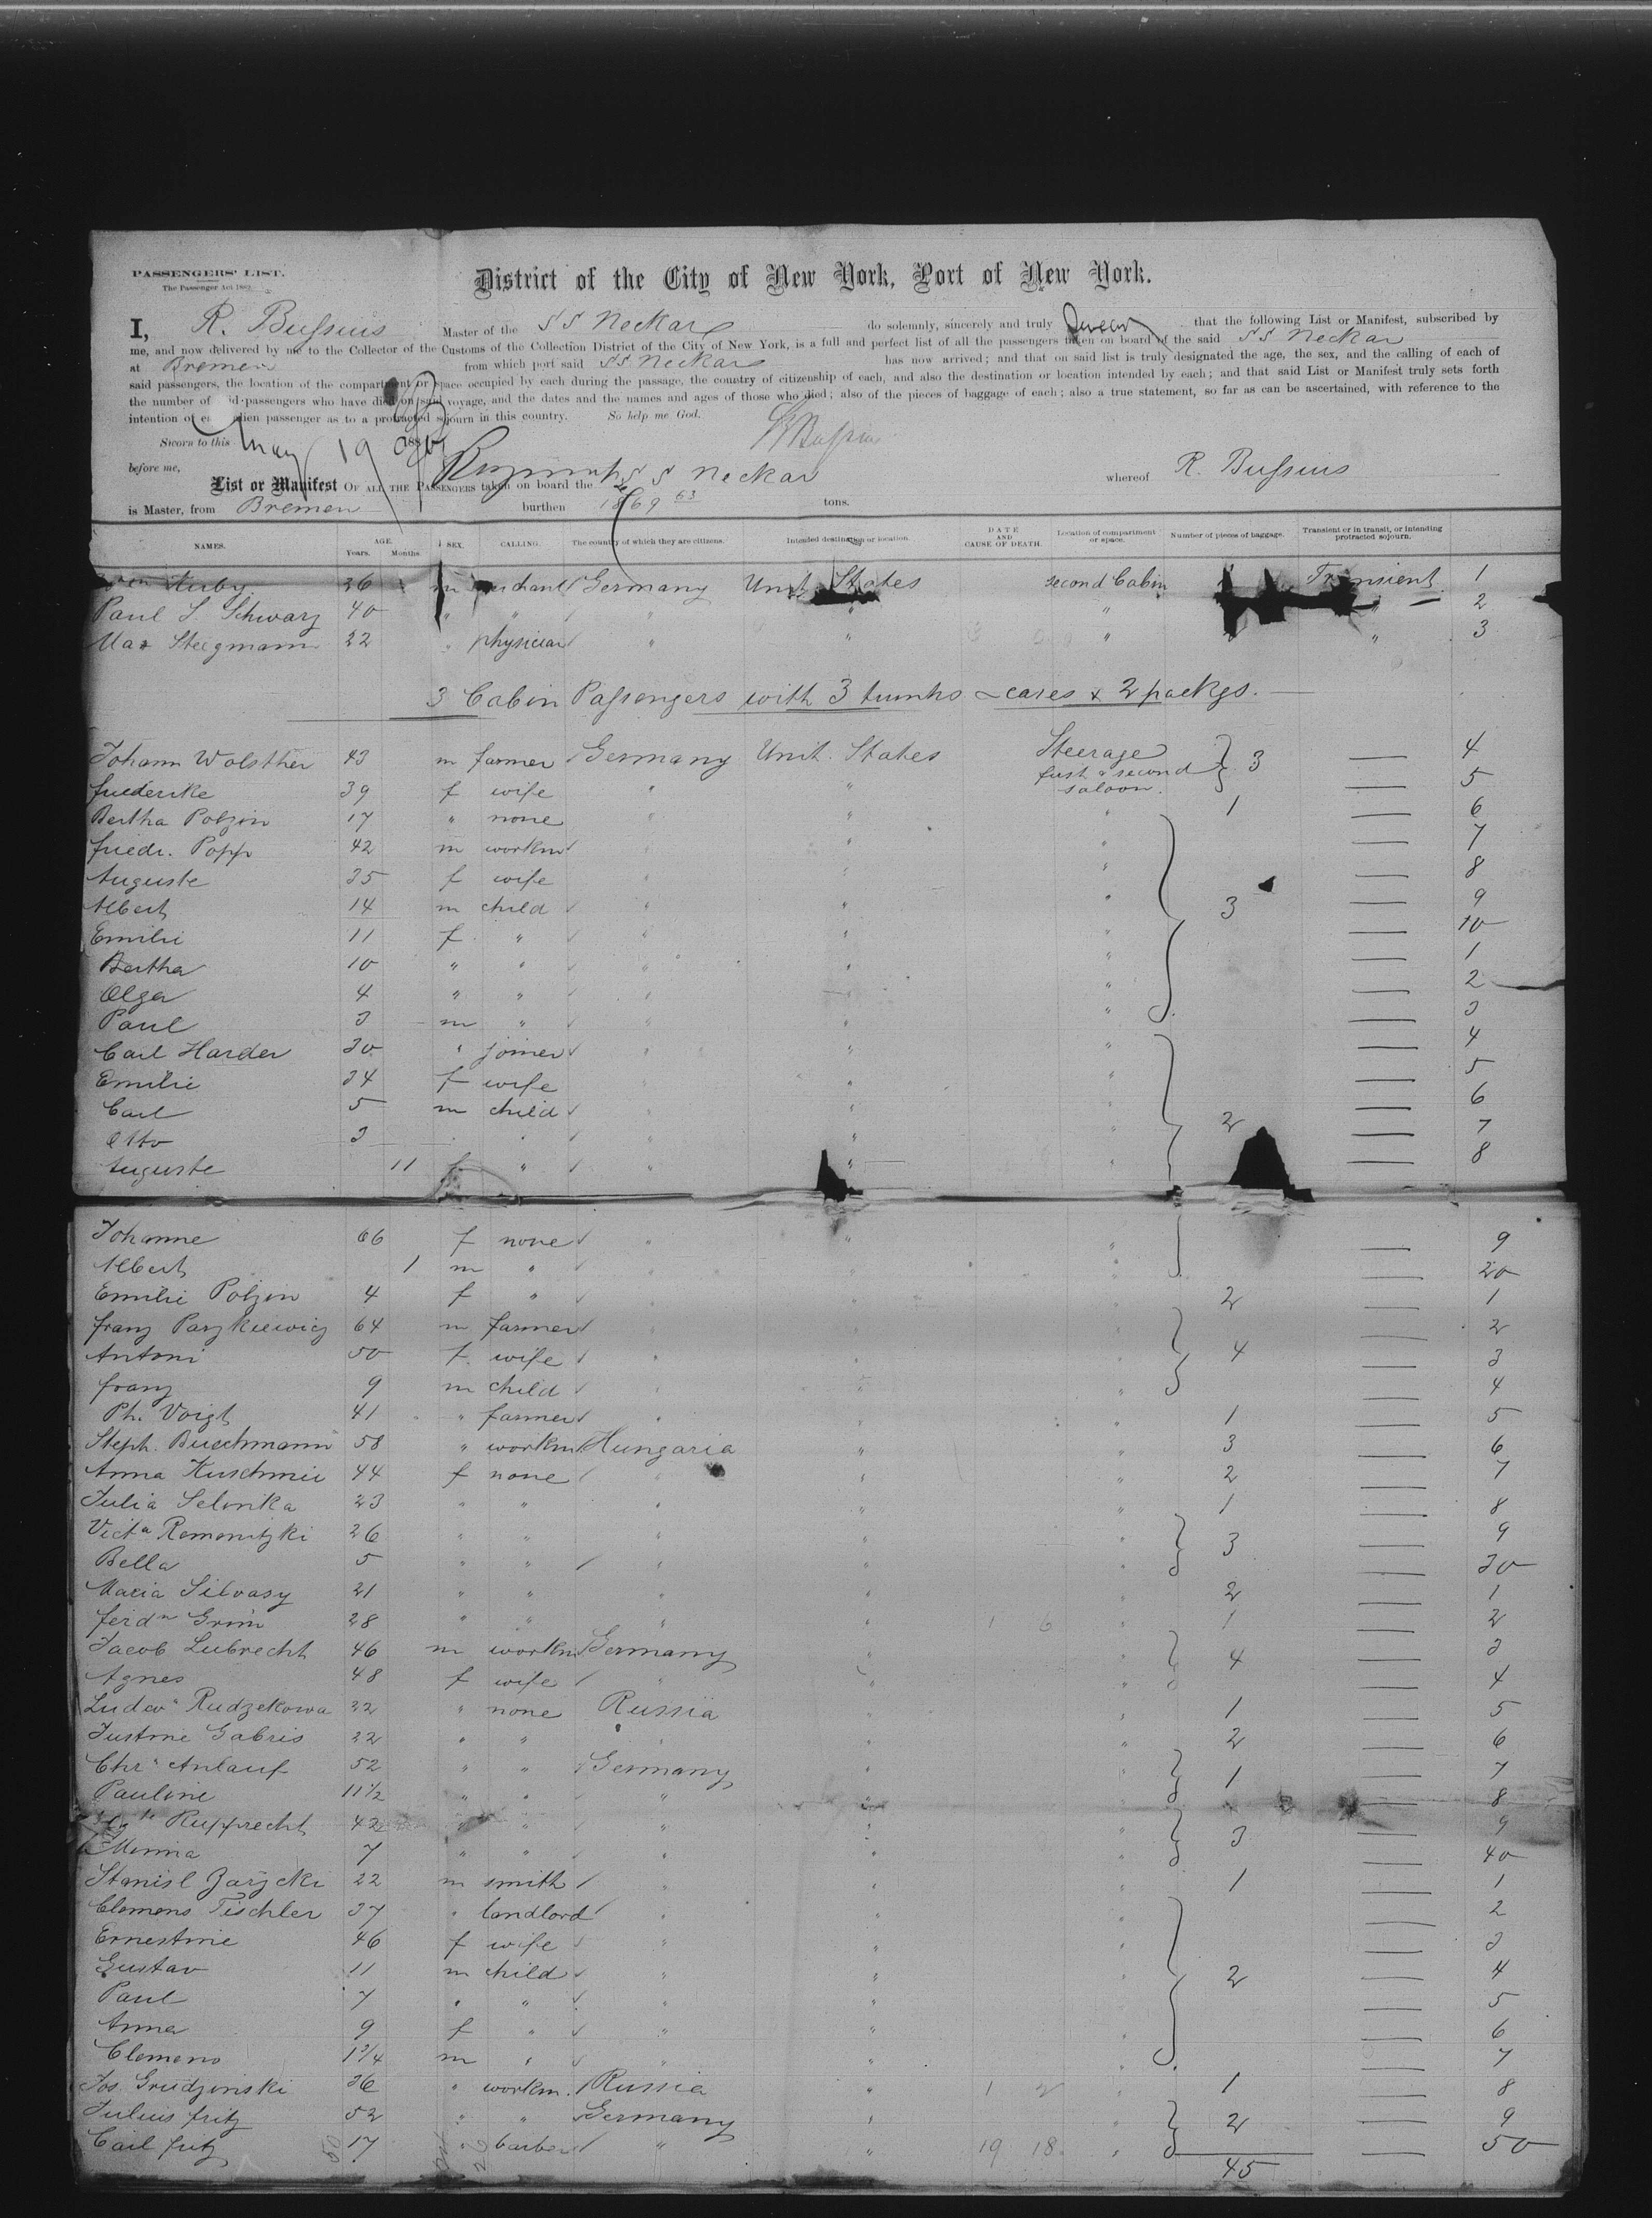 PASSENGERS' LIST.
The Passenger Act 1882.
District of the City of New York, Port of New York.
I, R. Bussius Master of the SS Neckar do solemnly, sincerely and truly swear that the following List or Manifest, subscribed by
me, and now delivered by me to the Collector of the Customs of the Collection District of the City of New York, is a full and perfect list of all the passengers taken on board of the said SS Neckar
at Bremen from which port said SS. Neckar has now arrived; and that on said list is truly designated the age, the sex, and the calling of each of
said passengers, the location of the compartment or space occupied by each during the passage, the country of citizenship of each, and also the destination or location intended by each; and that said List or Manifest truly sets forth
the number of said passengers who have died on said voyage, and the dates and the names and ages of those who died; also of the pieces of baggage of each; also a true statement, so far as can be ascertained, with reference to the
intention of each alien passenger as to a protracted sojourn in this country. So help me God.
Sworn to this May 19 188 R Bussius
before me,
List or Manifest OF ALL THE PASSENGERS taken on board the SS Neckar whereof R. Bussius
is Master, from Bremen burthen 1869 63 tons.
NAMES. AGE. Years. Months. SEX. CALLING. The country of which they are citizens. Intended destination or location. DATE AND CAUSE OF DEATH. Location of compartment or space. Number of pieces of baggage. Transient or in transit, or intending protracted sojourn.
Kuby 36 m Germany Unit. States second Cabin Transient 1
Paul S. Schwarz 40 " " " " " " 2
Max Steegmann 22 " physician " " " " 3
3 Cabin Passengers with 3 trunks cases & 2 packgs.
Johann Wolsther 43 m farmer Germany Unit. States Steerage first & second saloon. 3 — 4
friederike 39 f wife " " — 5
Bertha Polzin 17 " none " " " 1 — 6
friedr. Popp 42 m workm " " " — 7
Auguste 35 f wife " " " — 8
Albert 14 m child " " " 3 — 9
Emilie 11 f " " " " — 10
Bertha 10 " " " " " — 1
Olga 4 " " " " " — 2
Paul 3 m " " " " — 3
Carl Harder 30 " joiner " " " — 4
Emilie 34 f wife " " " — 5
Carl 5 m child " " " — 6
Otto 3 " " " " " 2 — 7
Auguste 11 f " " " " — 8
Johanne 66 f none " " " — 9
Albert 1 m " " " " — 20
Emilie Polzin 4 f " " " " 2 — 1
franz Parzkiewicz 64 m farmer " " " — 2
Antoni 50 f. wife " " " 4 — 3
franz 9 m child " " " — 4
Ph. Voigt 41 " farmer " " " 1 — 5
Steph. Buechmann 58 " workm Hungaria " " 3 — 6
Anna Kuschnir 44 f none " " " 2 — 7
Julia Selinka 23 " " " " " 1 — 8
Vict a Romanitzki 26 " " " " " 3 — 9
Bella 5 " " " " " — 30
Maria Silvasy 21 " " " " " 2 — 1
ferd n Grim 28 " " " " " 1 — 2
Jacob Lubrecht 46 m workm Germany " " 4 — 3
Agnes 48 f wife " " " — 4
Ludw a Rudzekowa 22 " none Russia " " 1 — 5
Justine Gabris 22 " " " " " 2 — 6
Chr e Anlauf 52 " " Germany " " 1 — 7
Pauline 11 1/2 " " " " " — 8
Rupprecht 42 " " " " " 3 — 9
Minna 7 " " " " " — 40
Stanisl Zarzcki 22 m smith " " " 1 — 1
Clemens Tischler 37 " landlord " " " — 2
Ernestine 46 f wife " " " — 3
Gustav 11 m child " " " 2 — 4
Paul 7 " " " " " — 5
Anna 9 f " " " " — 6
Clemens 1 3/4 m " " " " — 7
Jos. Grudzinski 36 " workm. Russia " " 1 — 8
Julius fritz 52 " " Germany " " 2 — 9
Carl fritz 17 " barber " " 19 18 " — 50
45